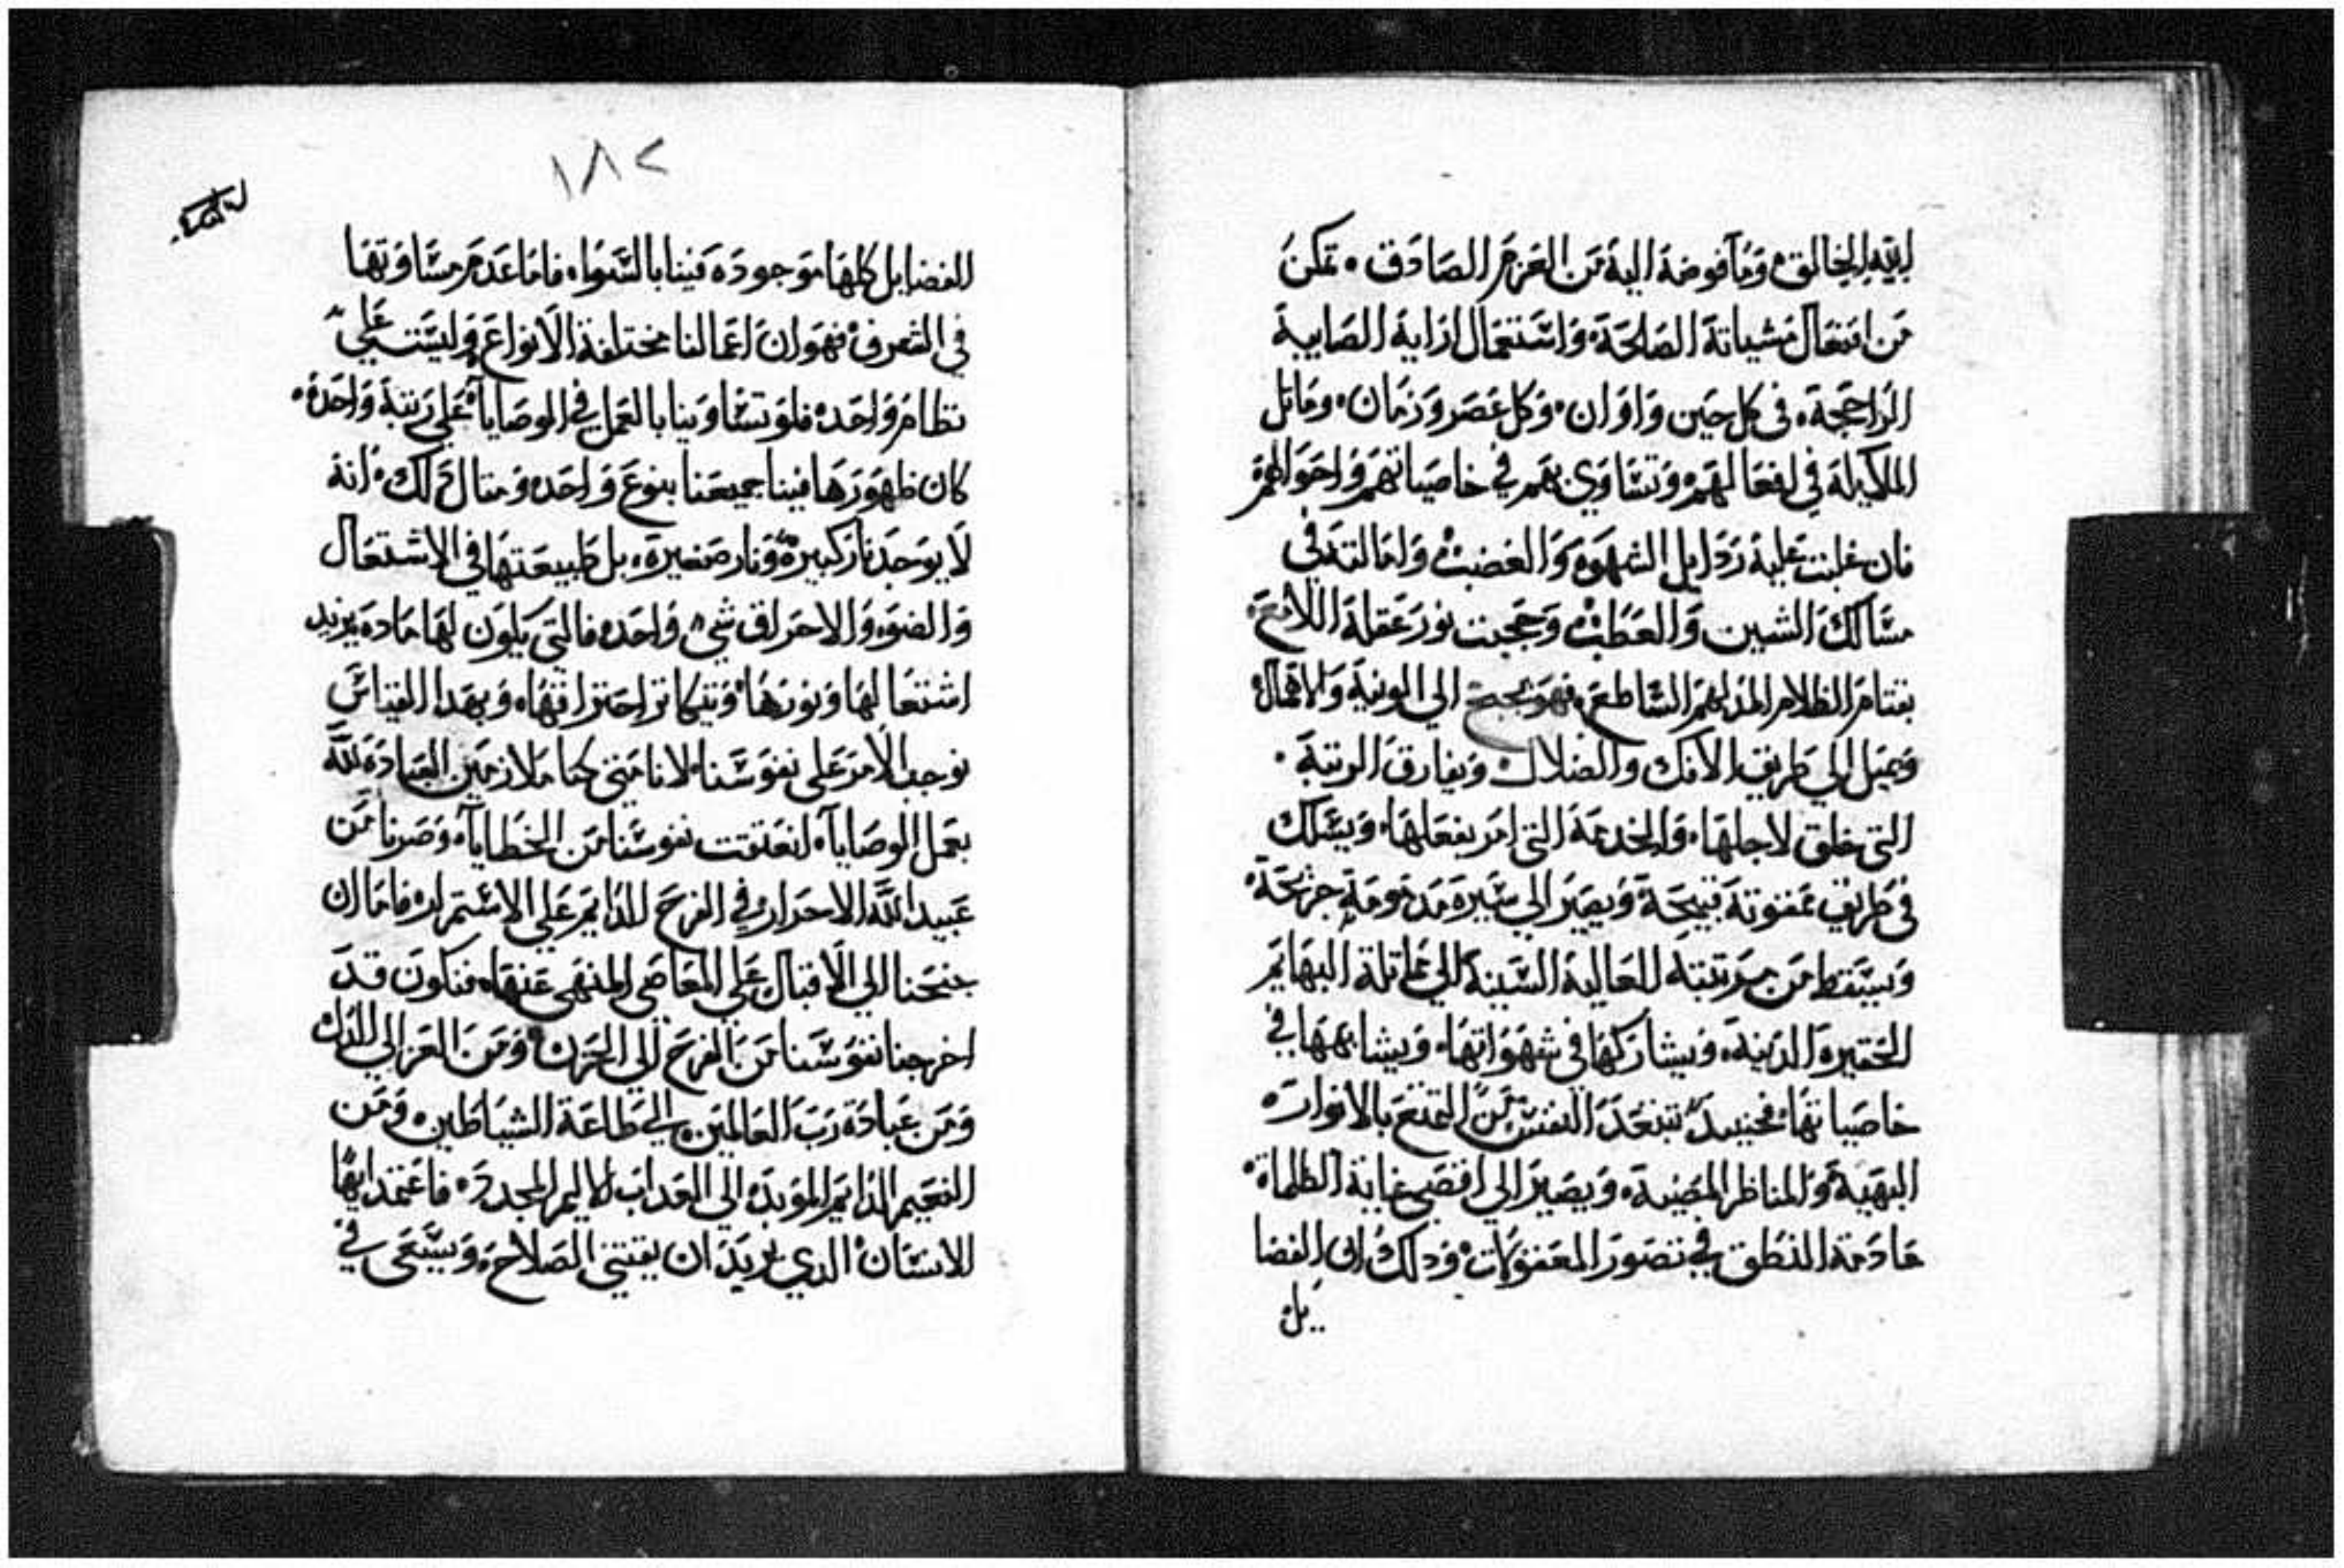 الخالق وما فوضة الية من العزم الصادق · تمكن
من افتعال مشياتة الصالحة واستعمال ارايه الصايبة
الراجحة، فى كل حين واوان · وكل عصر وزمان · وماثل
الملايكة في افعالهم وتساوي بهم في خاصياتهم واحوالهم
فان غلبت علية ردايل الشهوه والغضب وامالته في
مسالك الشين والعطب وحجبت نور عقلة اللامع
بقتام الظلام المدلهم الساطع، فهو يجنح الي الونية والاهمال
ويميل الي طريق الافك والضلال ويفارق الرتبة ·
التى خلق لاجلها، والخدمة التى امر بفعلها، ويسلك
فى طريق ممقوتة قبيحة ويصير الي سيرة مدمومة جريحة
ويسقط من مرتبته العالية السنية الي مماثلة البهايم
الحقيره الدنية، ويشاركها فى شهواتها، ويشابهها في
خاصياتها، فحينيد تبتعد النفس من التمتع بالانوار
البهية والمناظر المضية، ويصير الي اقصى غاية الظلمة
عادمة النطق في تصور المعقولات ودلك ان الفضا
يل
١٨٢
الفضايل كلها موجوده فينا بالسوا، فاما عدم مساوتها
في التصرف فهو ان اعمالنا مختلفة الانواع وليست علي
نظام واحد، فلو تساوينا بالعمل في الوصايا علي رتبة واحدة ·
كان ظهورها فينا جميعنا بنوع واحد، ومثال دلك، انه
لا يوجد نار كبيرة ونار صغيرة، بل طبيعتها في الاشتعال
والضوء والاحراق شيء واحد، فالتى يكون لها ماده يزيد
اشتعالها ونورها، ويتكاثر احتراقها، وبهدا القياس
نوجب الامر على نفوسنا، لانا متى كنا ملازمين العبادة لله
بعمل الوصايا، انعتقت نفوسنا من الخطايا، وصرنا من
عبيد الله الاحرار في الفرح الدايم علي الاستمرار، فاما ان
جنحنا الي الاقبال علي المعاصى المنهى عنها، فنكون قد
اخرجنا نفوسنا من الفرح الي الحزن ومن العز الي الدل
ومن عبادة رب العالمين الى طاعة الشياطين، ومن
النعيم الدايم الموبد، الى العداب الاليم المجدد، فاعتمد ايها
الانسان الدي يريد ان يقتني الصلاح، ويسعى في